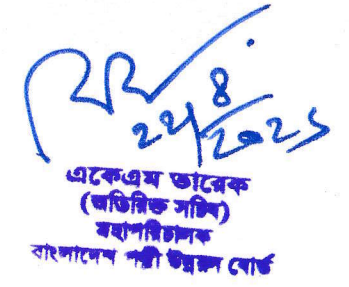 22/8/2025
একেএম তারেক
(অতিরিক্ত সচিব)
মহাপরিচালক
বাংলাদেশ পল্লী উন্নয়ন বোর্ড